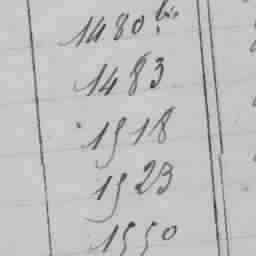 1480 bis
1483
1518
1523
1550